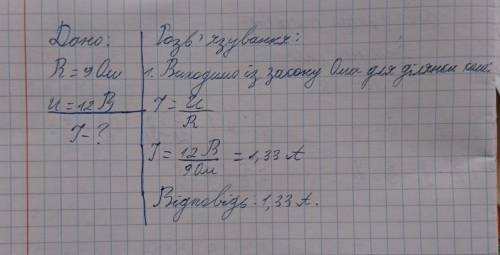 Дано:
R = 9 Ом
U = 12 В
I - ?
Розв'язування:
1. Виходимо із закону Ома для ділянки кола:
I = U/R
I = 12 В/9 Ом = 1,33 А
Відповідь: 1,33 А.